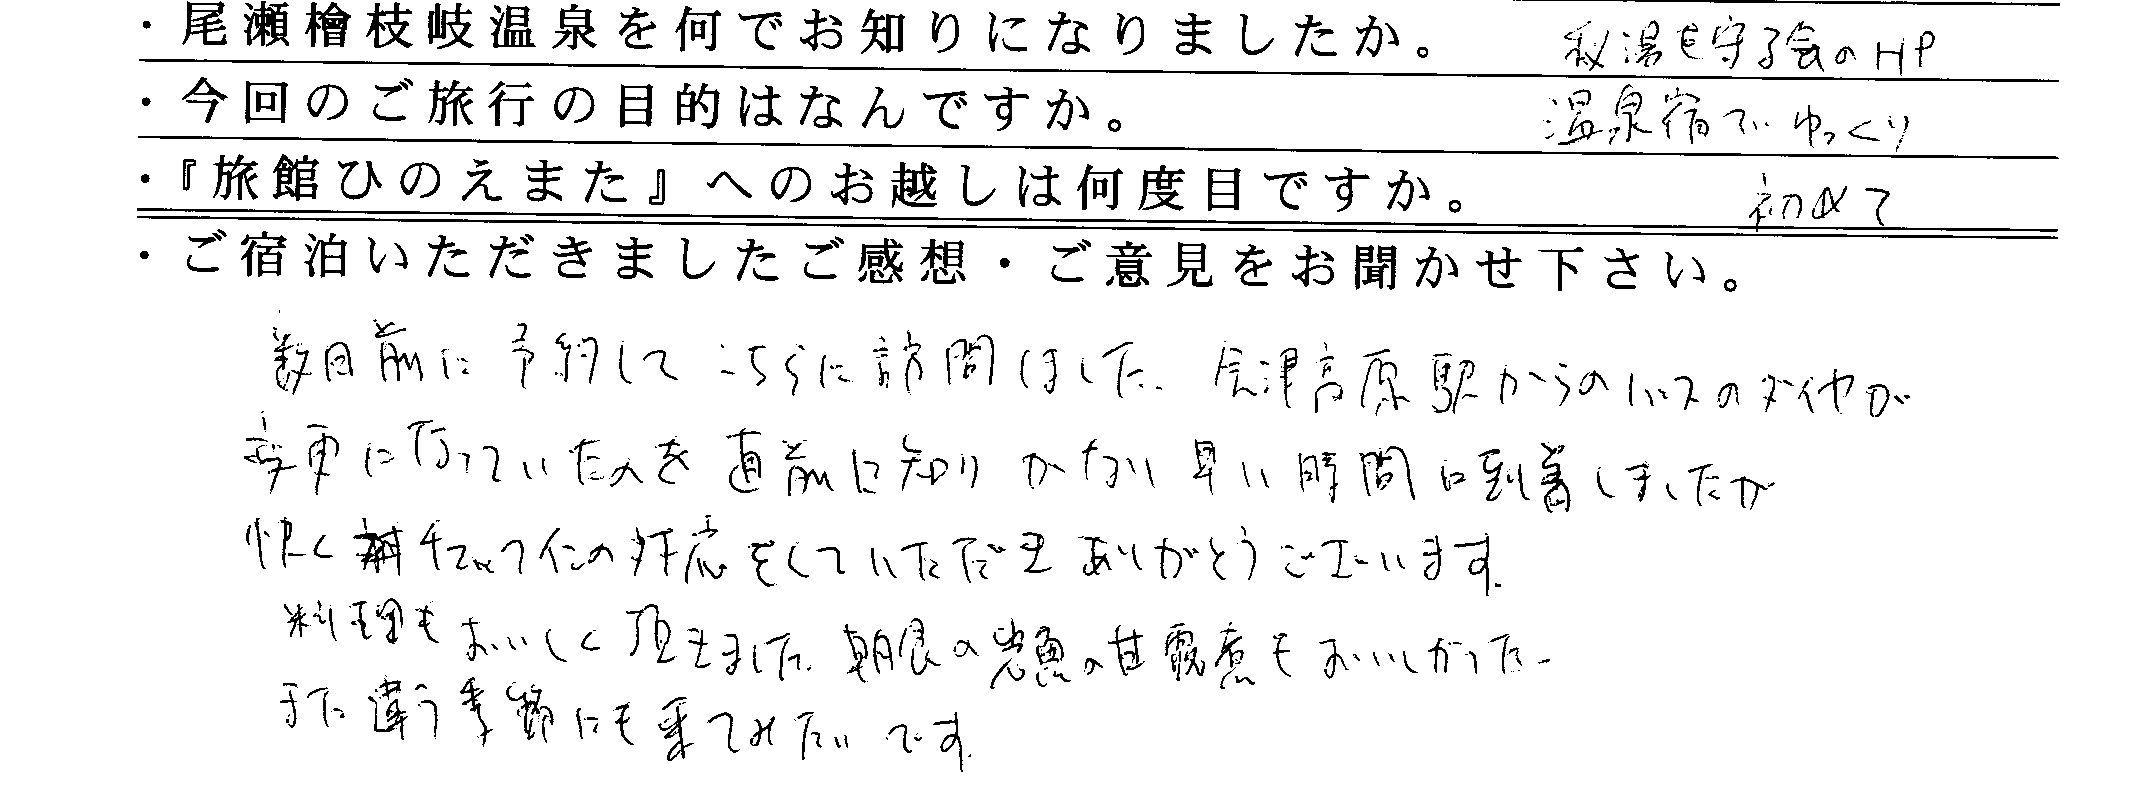 ・尾瀬檜枝岐温泉を何でお知りになりましたか。 秘湯を守る会のHP
・今回のご旅行の目的はなんですか。 温泉宿でゆっくり
・『旅館ひのえまた』へのお越しは何度目ですか。 初めて
・ご宿泊いただきましたご感想・ご意見をお聞かせ下さい。
数日前に予約してこちらに訪問しました。会津高原駅からのバスのダイヤが
変更になっていたのを直前に知りかなり早い時間に到着しましたが
快くチェックインの対応をしていただきありがとうございます。
料理もおいしく頂きました。朝食の岩魚の甘露煮もおいしかった。
また違う季節にも来てみたいです。